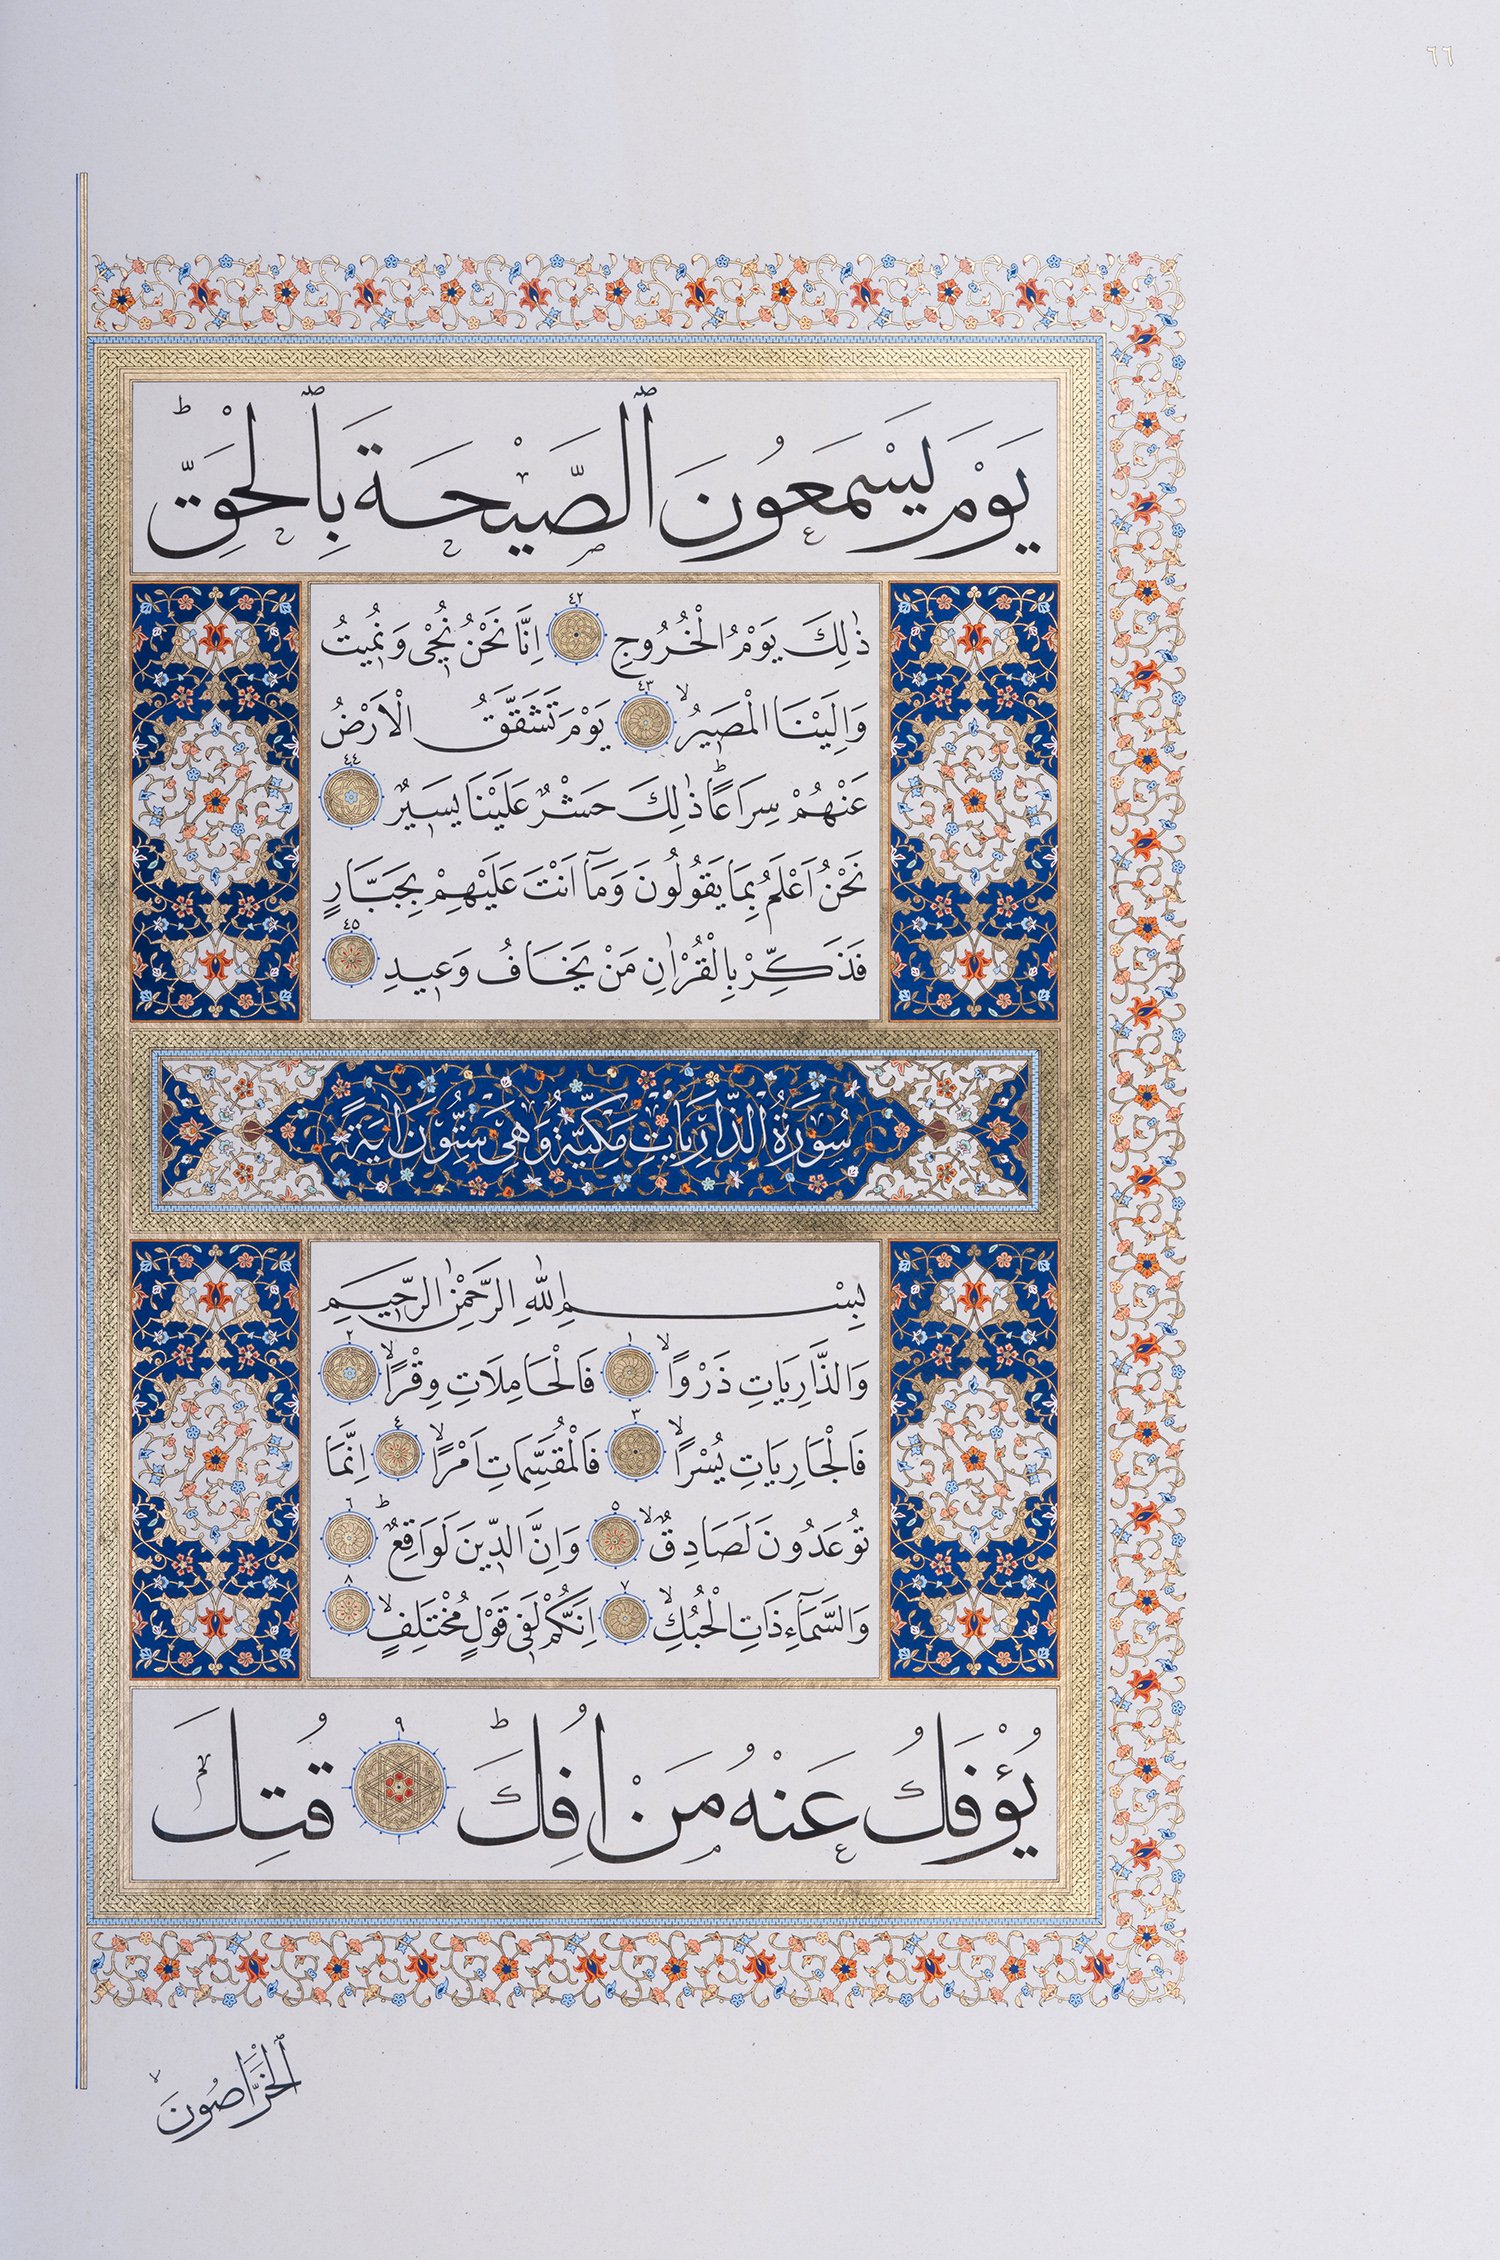 ٦٦
يَوْمَ يَسْمَعُونَ ٱلصَّيْحَةَ بِٱلْحَقِّۜ ط
ذٰلِكَ يَوْمُ الْخُرُوجِ ٤٢ اِنَّا نَحْنُ نُحْيٖ وَنُمٖيتُ
وَاِلَيْنَا الْمَصٖيرُۙ ٤٣ يَوْمَ تَشَقَّقُ الْاَرْضُ
عَنْهُمْ سِرَاعًاؕ ذٰلِكَ حَشْرٌ عَلَيْنَا يَسٖيرٌ ٤٤
نَحْنُ اَعْلَمُ بِمَا يَقُولُونَ وَمَآ اَنْتَ عَلَيْهِمْ بِجَبَّارٍ
فَذَكِّرْ بِالْقُرْاٰنِ مَنْ يَخَافُ وَعٖيدِ ٤٥
سُورَةُ الذَّارِيَاتِ مَكِّيَّةٌ وَهِيَ سِتُّونَ اٰيَةً
بِسْمِ اللّٰهِ الرَّحْمٰنِ الرَّحٖيمِ
وَالذَّارِيَاتِ ذَرْوًاۙ ١ فَالْحَامِلَاتِ وِقْرًاۙ ٢
فَالْجَارِيَاتِ يُسْرًاۙ ٣ فَالْمُقَسِّمَاتِ اَمْرًاۙ ٤ اِنَّمَا
تُوعَدُونَ لَصَادِقٌۙ ٥ وَاِنَّ الدّٖينَ لَوَاقِعٌؕ ٦
وَالسَّمَآءِ ذَاتِ الْحُبُكِۙ ٧ اِنَّكُمْ لَفٖي قَوْلٍ مُخْتَلِفٍۙ ٨
يُؤْفَكُ عَنْهُ مَنْ اُفِكَؕ ٩ قُتِلَ
ٱلْخَرَّاصُونَۙ